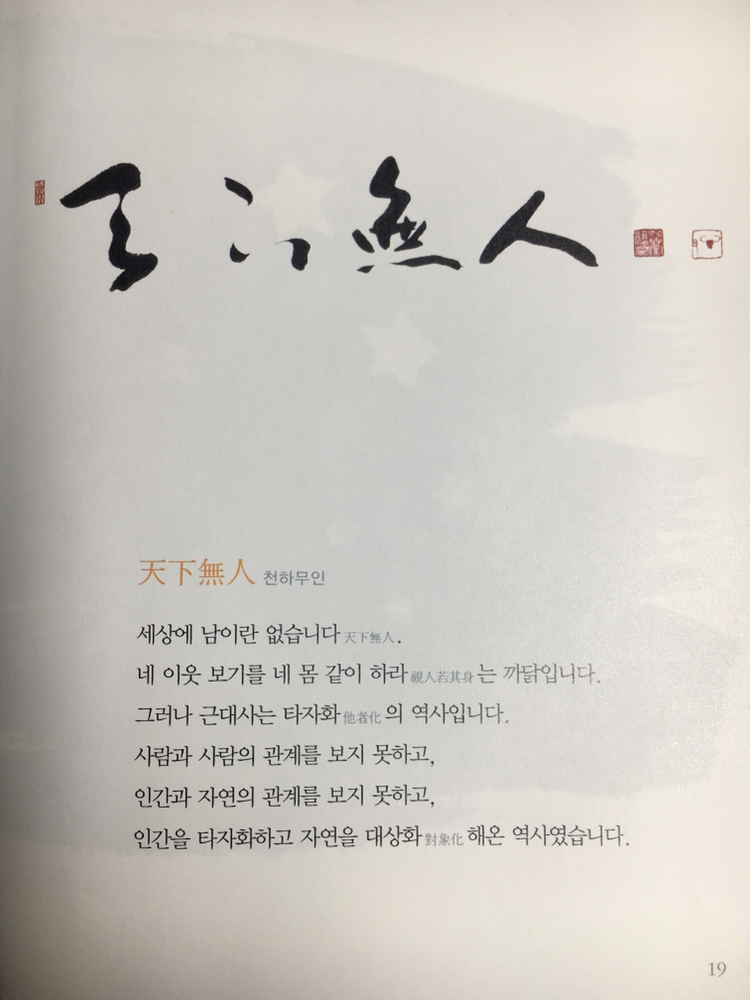 天下無人
天下無人 천하무인
세상에 남이란 없습니다 天下無人.
네 이웃 보기를 네 몸 같이 하라 視人若其身 는 까닭입니다.
그러나 근대사는 타자화 他者化 의 역사입니다.
사람과 사람의 관계를 보지 못하고,
인간과 자연의 관계를 보지 못하고,
인간을 타자화하고 자연을 대상화 對象化 해온 역사였습니다.
19